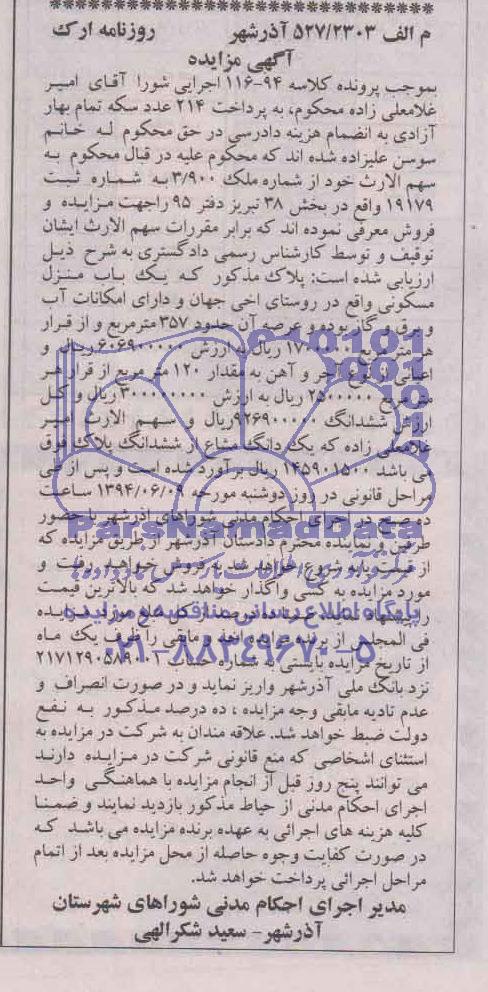 م الف ۵۲۷/۲۳۰۳ آذرشهر روزنامه ارک
آگهی مزایده
بموجب پرونده کلاسه ۹۴-۱۱۶ اجرایی شورا آقای امیر
غلامعلی زاده محکوم، به پرداخت ۲۱۴ عدد سکه تمام بهار
آزادی به انضمام هزینه دادرسی در حق محکوم له خانم
سوسن علیزاده شده اند که محکوم علیه در قبال محکوم به
سهم الارث خود از شماره ملک ۳/۹۰۰ به شماره ثبت
۱۹۱۷۹ واقع در بخش ۳۸ تبریز دفتر ۹۵ راجهت مزایده و
فروش معرفی نموده اند که برابر مقررات سهم الارث ایشان
توقیف و توسط کارشناس رسمی دادگستری به شرح ذیل
ارزیابی شده است: پلاک مذکور که یک باب منزل
مسکونی واقع در روستای اخی جهان و دارای امکانات آب
و برق و گاز بوده و عرصه آن حدود ۳۵۷ مترمربع و از قرار
هر متر مربع ریال به ارزش ۶۰۶۹۰۰۰۰۰ ریال و
اعیانی از نوع آجر و آهن به مقدار ۱۲۰ متر مربع از قرار هر
متر مربع ۲۵۰۰۰۰۰ ریال به ارزش ۳۰۰۰۰۰۰۰۰ ریال و کل
ارزش ششدانگ ریال و سهم الارث امیر
غلامعلی زاده که یک دانگ مشاع از ششدانگ پلاک فوق
می باشد ریال برآورد شده است و پس از طی
مراحل قانونی در روز دوشنبه مورخه ۱۳۹۴/۰۶/۰۹ ساعت
ده صبح در اجرای احکام مدنی شوراهای آذرشهر با حضور
طرفین و نماینده محترم دادستان آذرشهر از طریق مزایده که
از قیمت پایه شروع خواهد شد به فروش خواهد رفت و
مورد مزایده به کسی واگذار خواهد شد که بالاترین قیمت
را پیشنهاد نماید. ده درصد از کل مبلغ مورد مزایده
فی المجلس از برنده مزایده اخذ و مابقی را ظرف یک ماه
از تاریخ مزایده بایستی به شماره حساب ۲۱۷۱۲۹۰۵۸۹۰۰۱
نزد بانک ملی آذرشهر واریز نماید و در صورت انصراف و
عدم تادیه مابقی وجه مزایده ، ده درصد مذکور به نفع
دولت ضبط خواهد شد. علاقه مندان به شرکت در مزایده به
استثنای اشخاصی که منع قانونی شرکت در مزایده دارند
می توانند پنج روز قبل از انجام مزایده با هماهنگی واحد
اجرای احکام مدنی از حیاط مذکور بازدید نمایند و ضمنا
کلیه هزینه های اجرائی به عهده برنده مزایده می باشد که
در صورت کفایت وجوه حاصله از محل مزایده بعد از اتمام
مراحل اجرائی پرداخت خواهد شد.
مدیر اجرای احکام مدنی شوراهای شهرستان
آذرشهر- سعید شکرالهی
ParsNamadData
پایگاه اطلاع رسانی مناقصه و مزایده
۰۲۱-۸۸۳۴۹۶۷۰-۵